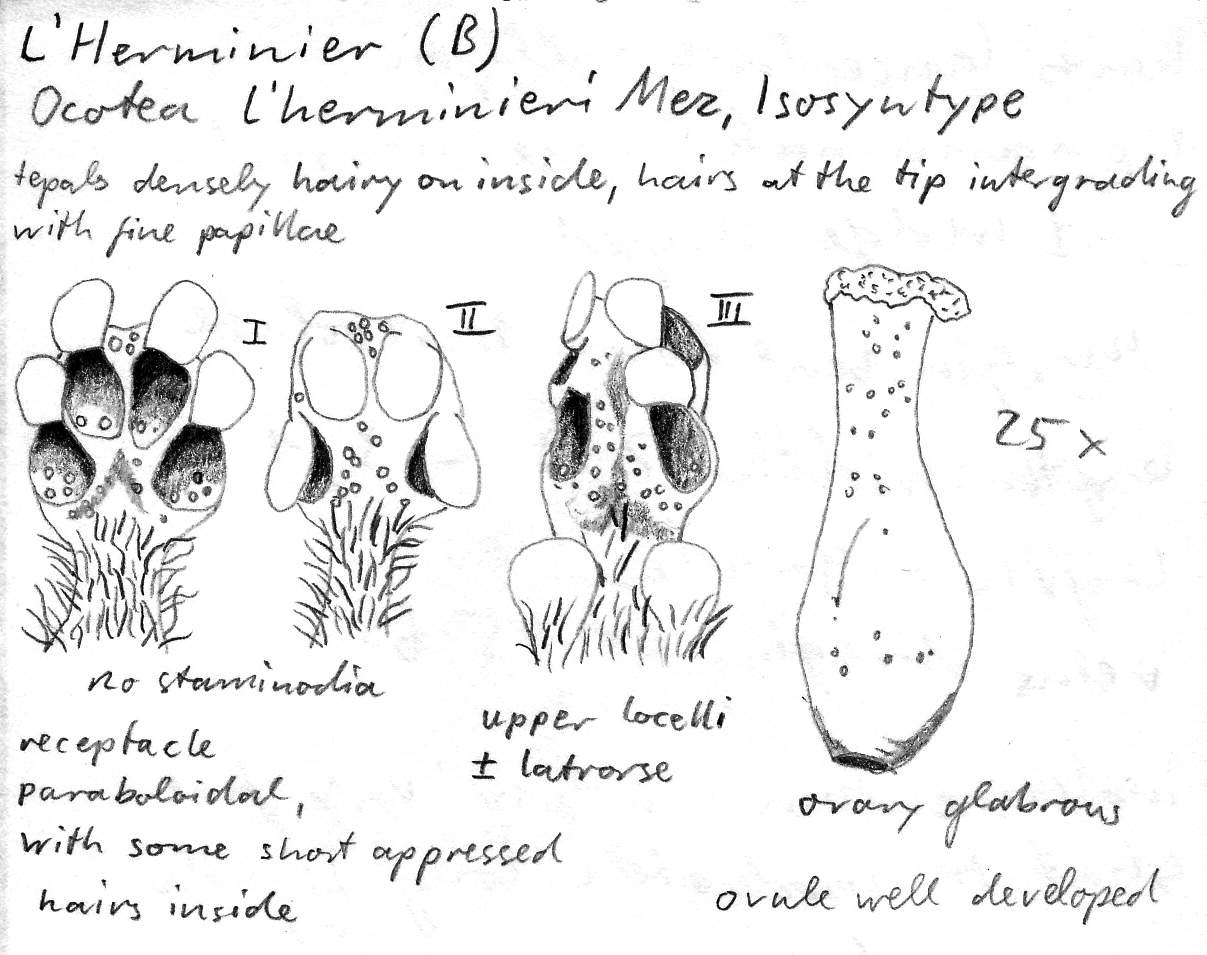 L'Herminier (B)
Ocotea l'herminieri Mez, Isosyntype
tepals densely hairy on inside, hairs at the tip intergrading
with fine papillae
I
II
III
25 x
no staminodia
upper locelli
± latrorse
receptacle
paraboloidal,
with some short appressed
hairs inside
ovary glabrous
ovule well developed